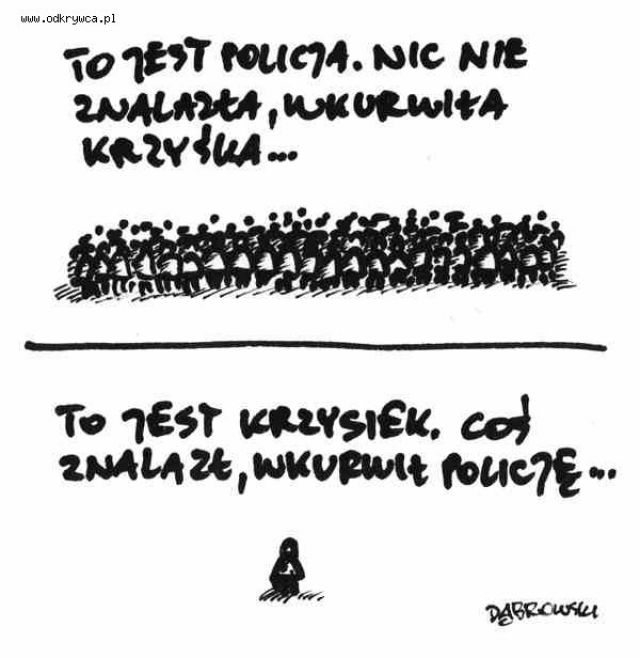 www.odkrywca.pl
TO JEST POLICJA. NIC NIE
ZNALAZŁA, WKURWIŁA
KRZYŚKA...
TO JEST KRZYSIEK. COŚ
ZNALAZŁ, WKURWIŁ POLICJĘ...
DĄBROWSKI